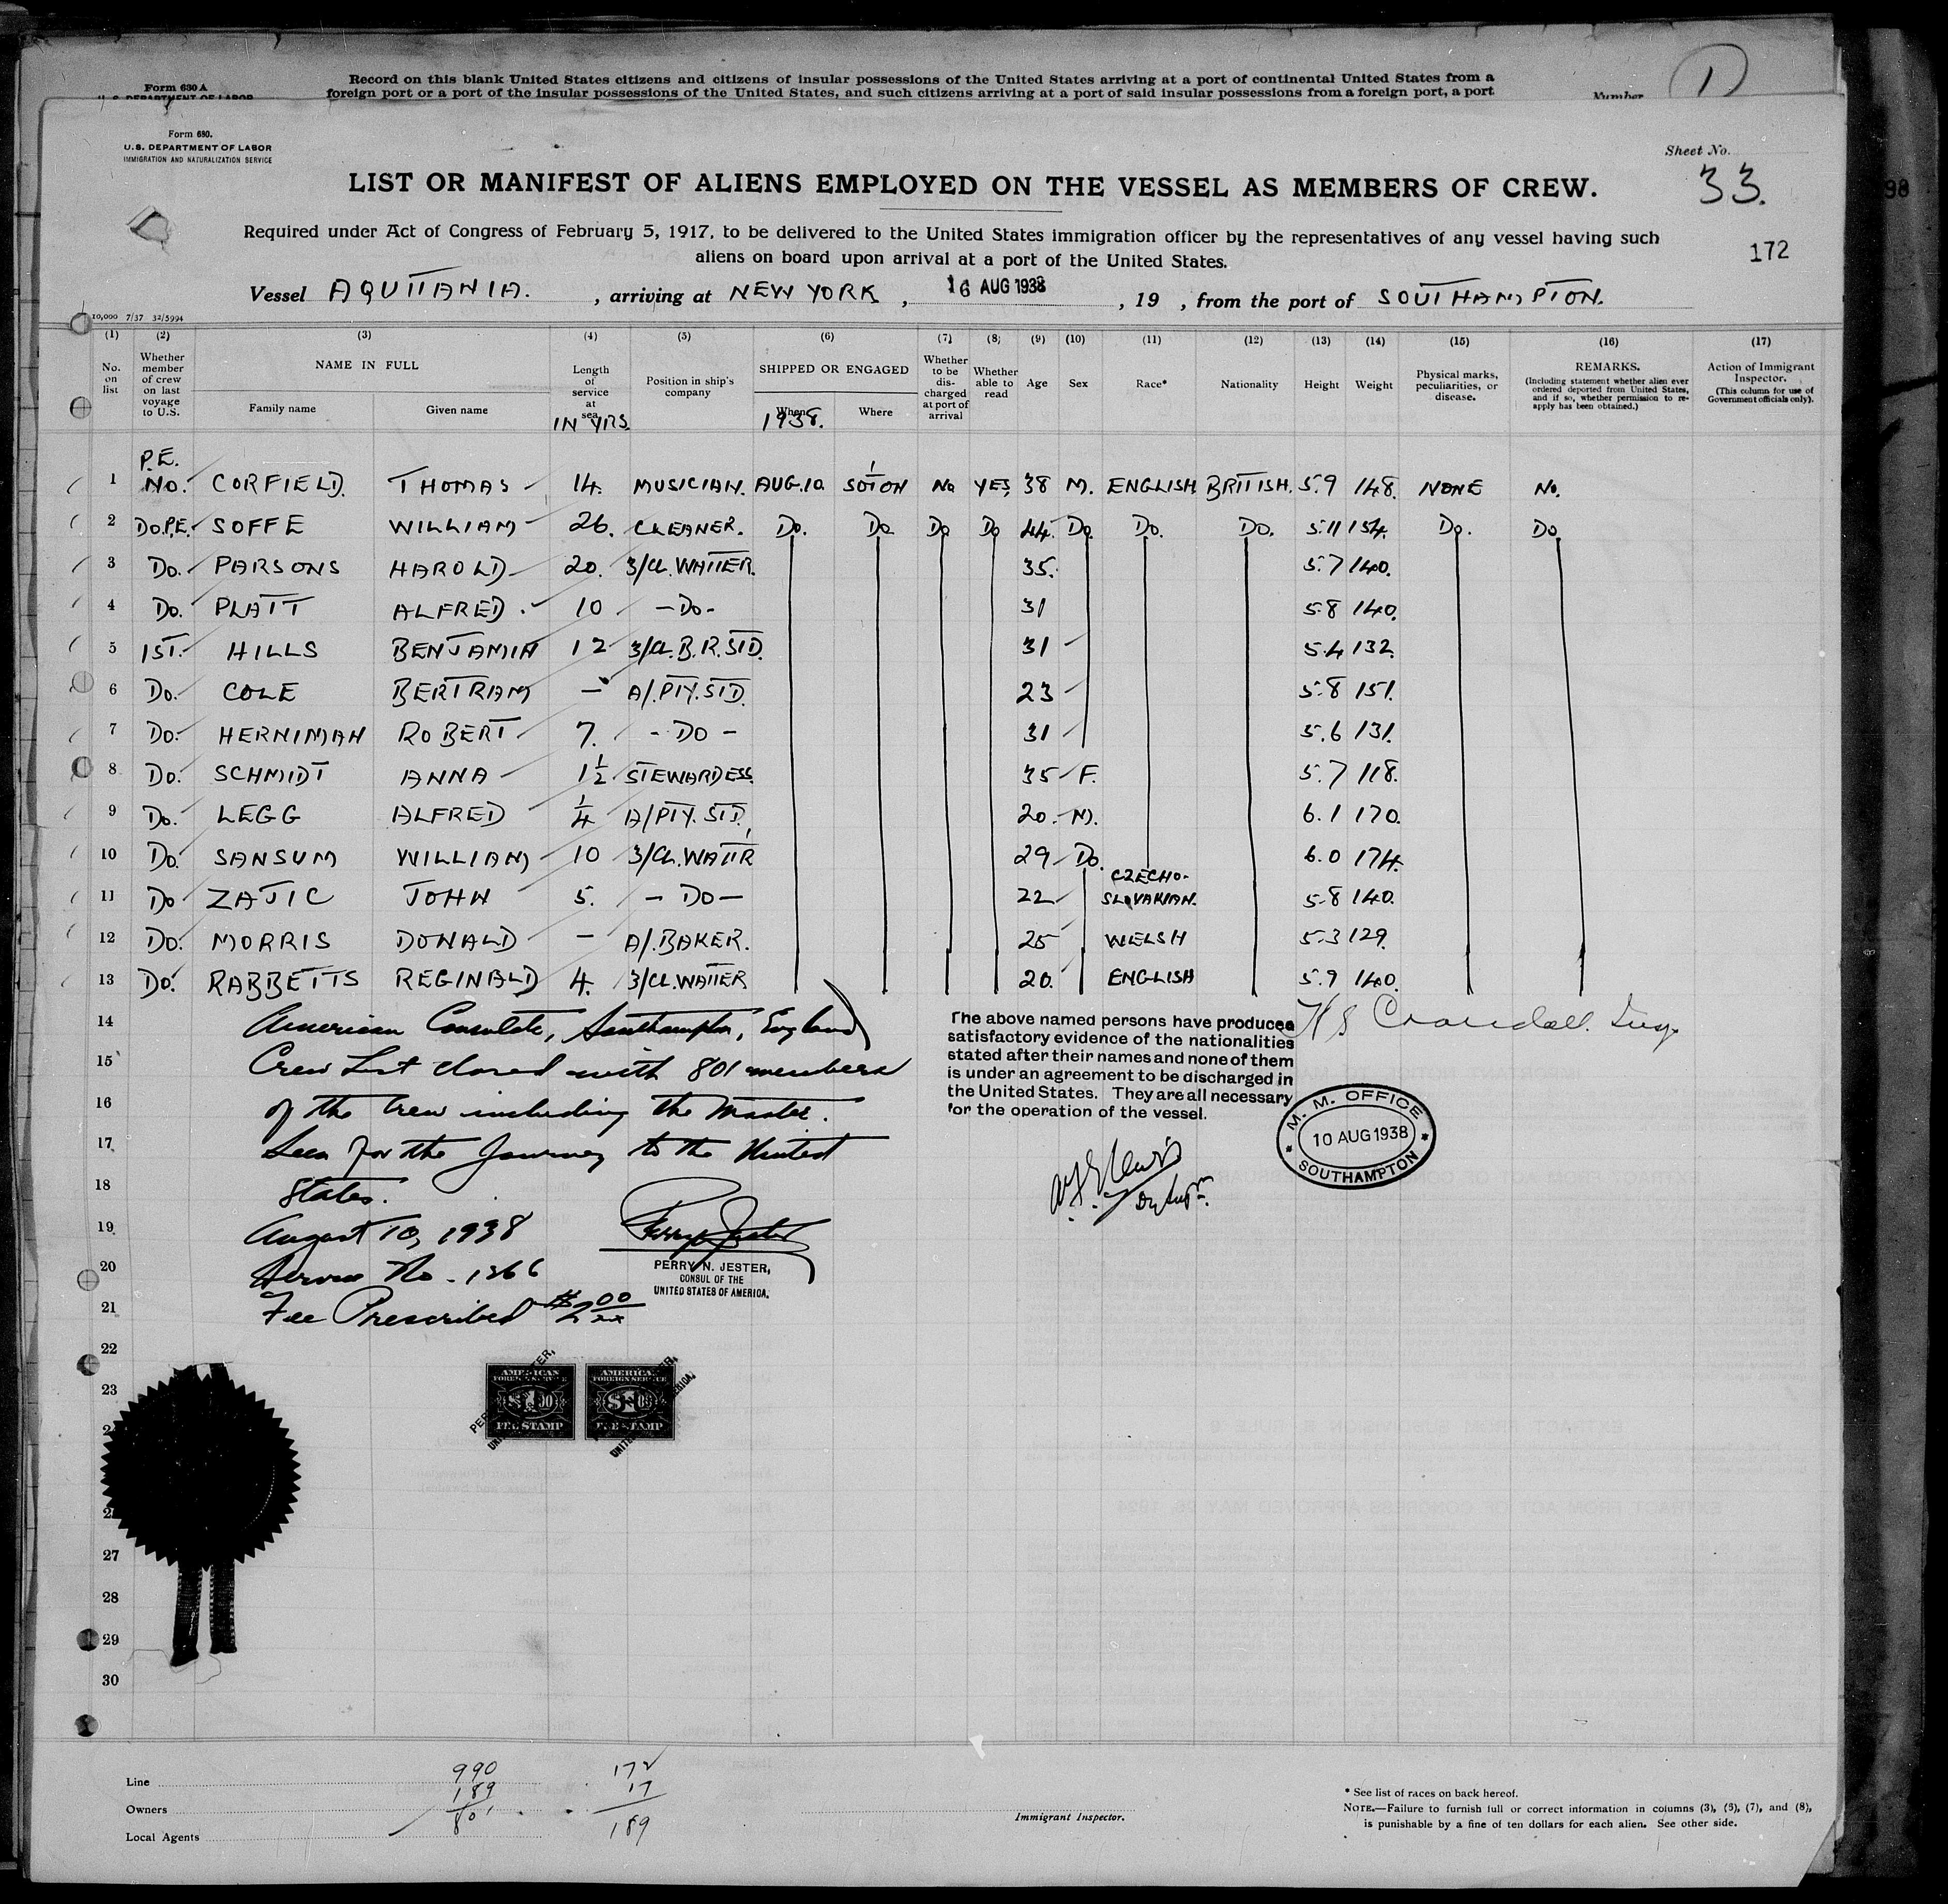 Form 630 A
U. S. DEPARTMENT OF LABOR
Record on this blank United States citizens and citizens of insular possessions of the United States arriving at a port of continental United States from a
foreign port or a port of the insular possessions of the United States, and such citizens arriving at a port of said insular possessions from a foreign port, a port
Number
1
Form 680.
U.S. DEPARTMENT OF LABOR
IMMIGRATION AND NATURALIZATION SERVICE
Sheet No.
33.
98
LIST OR MANIFEST OF ALIENS EMPLOYED ON THE VESSEL AS MEMBERS OF CREW.
Required under Act of Congress of February 5, 1917, to be delivered to the United States immigration officer by the representatives of any vessel having such
aliens on board upon arrival at a port of the United States.
172
Vessel AQUITANIA. , arriving at NEW YORK , 16 AUG 1938 , 19 , from the port of SOUTHAMPTON.
10,000 7/37 32/5994
(1) (2) (3) (4) (5) (6) (7) (8) (9) (10) (11) (12) (13) (14) (15) (16) (17)
No. on list
Whether member of crew on last voyage to U.S.
NAME IN FULL
Family name
Given name
Length of service at sea
IN YRS.
Position in ship's company
SHIPPED OR ENGAGED
When
1938.
Where
Whether to be dis-charged at port of arrival
Whether able to read
Age
Sex
Race*
Nationality
Height
Weight
Physical marks, peculiarities, or disease.
REMARKS.
(Including statement whether alien ever ordered deported from United States, and if so, whether permission to re-apply has been obtained.)
Action of Immigrant Inspector.
(This column for use of Government officials only).
P.E.
1 NO. CORFIELD. THOMAS 14. MUSICIAN. AUG.10. SOTON NO YES 38 M. ENGLISH BRITISH. 5.9 148. NONE NO.
2 DO.P.E. SOFFE WILLIAM 26. CLEANER. DO. DO DO DO 44. DO. DO. DO. 5.11 154. DO. DO
3 DO. PARSONS HAROLD 20. 3/CL. WAITER. 35. 5.7 140.
4 DO. PLATT ALFRED. 10 -DO- 31 5.8 140.
5 1ST. HILLS BENJAMIN 12 3/CL. B.R. STD. 31 5.4 132.
6 DO. COLE BERTRAM - A/.PTY.STD. 23 5.8 151.
7 DO. HERNIMAN ROBERT 7. - DO - 31 5.6 131.
8 DO. SCHMIDT ANNA 1½ STEWARDESS. 35 F. 5.7 118.
9 DO. LEGG ALFRED ¼ A/PTY. STD. 20. M. 6.1 170.
10 DO. SANSUM WILLIAM 10 3/CL. WAITR 29 DO. 6.0 174.
11 DO ZAJIC JOHN 5. - DO - 22 CZECHO-SLOVAKIAN. 5.8 140.
12 DO. MORRIS DONALD - A/.BAKER. 25 WELSH 5.3 129.
13 DO. RABBETTS REGINALD 4. 3/CL.WAITER 20. ENGLISH 5.9 140.
14 American Consulate, Southampton, England
15 Crew List closed with 801 members
16 of the Crew including the Master.
17 Seen for the Journey to the United
18 States.
19 August 10, 1938
20 Service No. 1366
21 Fee Prescribed $2.00
Perry N. Jester
PERRY N. JESTER,
CONSUL OF THE
UNITED STATES OF AMERICA.
The above named persons have produced
satisfactory evidence of the nationalities
stated after their names and none of them
is under an agreement to be discharged in
the United States. They are all necessary
for the operation of the vessel.
Lewis
H S Crandall. Insp.
M. M. OFFICE
10 AUG 1938
SOUTHAMPTON
22
23
AMERICAN FOREIGN SERVICE $1.00 FEE STAMP
AMERICAN FOREIGN SERVICE $1.00 FEE STAMP
27
28
29
30
Line
Owners
Local Agents
990
189
801
172
17
189
Immigrant Inspector.
* See list of races on back hereof.
NOTE.—Failure to furnish full or correct information in columns (3), (5), (7), and (8),
is punishable by a fine of ten dollars for each alien. See other side.